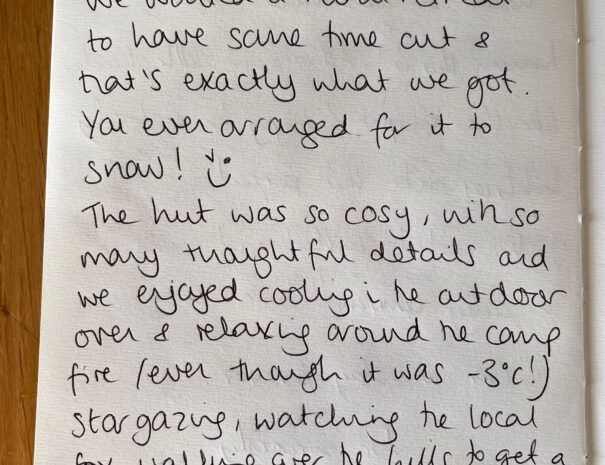 We wanted a
to have some time out &
that's exactly what we got.
You even arranged for it to
snow!
The hut was so cosy, with so
many thoughtful details and
we enjoyed cooking in the outdoor
oven & relaxing around the camp
fire (even though it was -3°c!)
stargazing, watching the local
fox walking over the hills to get a